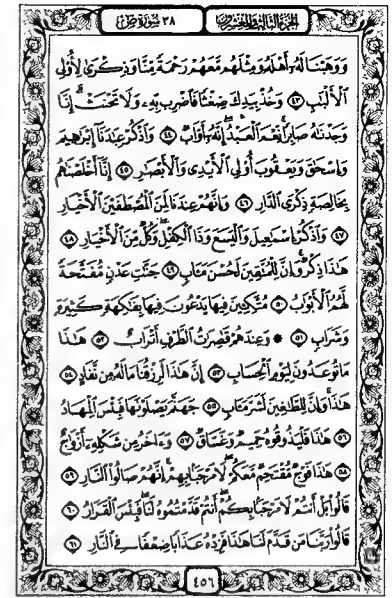 الجزء الثالث والعشرون ٣٨ سورة ص
وَوَهَبْنَا لَهُۥٓ أَهْلَهُۥ وَمِثْلَهُم مَّعَهُمْ رَحْمَةً مِّنَّا وَذِكْرَىٰ لِأُو۟لِى
ٱلْأَلْبَٰبِ ٤٣ وَخُذْ بِيَدِكَ ضِغْثًا فَٱضْرِب بِّهِۦ وَلَا تَحْنَثْ إِنَّا
وَجَدْنَٰهُ صَابِرًا نِّعْمَ ٱلْعَبْدُ إِنَّهُۥٓ أَوَّابٌ ٤٤ وَٱذْكُرْ عِبَٰدَنَآ إِبْرَٰهِيمَ
وَإِسْحَٰقَ وَيَعْقُوبَ أُو۟لِى ٱلْأَيْدِى وَٱلْأَبْصَٰرِ ٤٥ إِنَّآ أَخْلَصْنَٰهُم
بِخَالِصَةٍ ذِكْرَى ٱلدَّارِ ٤٦ وَإِنَّهُمْ عِندَنَا لَمِنَ ٱلْمُصْطَفَيْنَ ٱلْأَخْيَارِ
٤٧ وَٱذْكُرْ إِسْمَٰعِيلَ وَٱلْيَسَعَ وَذَا ٱلْكِفْلِ وَكُلٌّ مِّنَ ٱلْأَخْيَارِ ٤٨
هَٰذَا ذِكْرٌ وَإِنَّ لِلْمُتَّقِينَ لَحُسْنَ مَـَٔابٍ ٤٩ جَنَّٰتِ عَدْنٍ مُّفَتَّحَةً
لَّهُمُ ٱلْأَبْوَٰبُ ٥٠ مُتَّكِـِٔينَ فِيهَا يَدْعُونَ فِيهَا بِفَٰكِهَةٍ كَثِيرَةٍ
وَشَرَابٍ ٥١ ۞ وَعِندَهُمْ قَٰصِرَٰتُ ٱلطَّرْفِ أَتْرَابٌ ٥٢ هَٰذَا
مَا تُوعَدُونَ لِيَوْمِ ٱلْحِسَابِ ٥٣ إِنَّ هَٰذَا لَرِزْقُنَا مَا لَهُۥ مِن نَّفَادٍ ٥٤
هَٰذَا وَإِنَّ لِلطَّٰغِينَ لَشَرَّ مَـَٔابٍ ٥٥ جَهَنَّمَ يَصْلَوْنَهَا فَبِئْسَ ٱلْمِهَادُ
٥٦ هَٰذَا فَلْيَذُوقُوهُ حَمِيمٌ وَغَسَّاقٌ ٥٧ وَءَاخَرُ مِن شَكْلِهِۦٓ أَزْوَٰجٌ
٥٨ هَٰذَا فَوْجٌ مُّقْتَحِمٌ مَّعَكُمْ لَا مَرْحَبًۢا بِهِمْ إِنَّهُمْ صَالُوا۟ ٱلنَّارِ ٥٩
قَالُوا۟ بَلْ أَنتُمْ لَا مَرْحَبًۢا بِكُمْ أَنتُمْ قَدَّمْتُمُوهُ لَنَا فَبِئْسَ ٱلْقَرَارُ ٦٠
قَالُوا۟ رَبَّنَا مَن قَدَّمَ لَنَا هَٰذَا فَزِدْهُ عَذَابًا ضِعْفًا فِى ٱلنَّارِ ٦١
٤٥٦